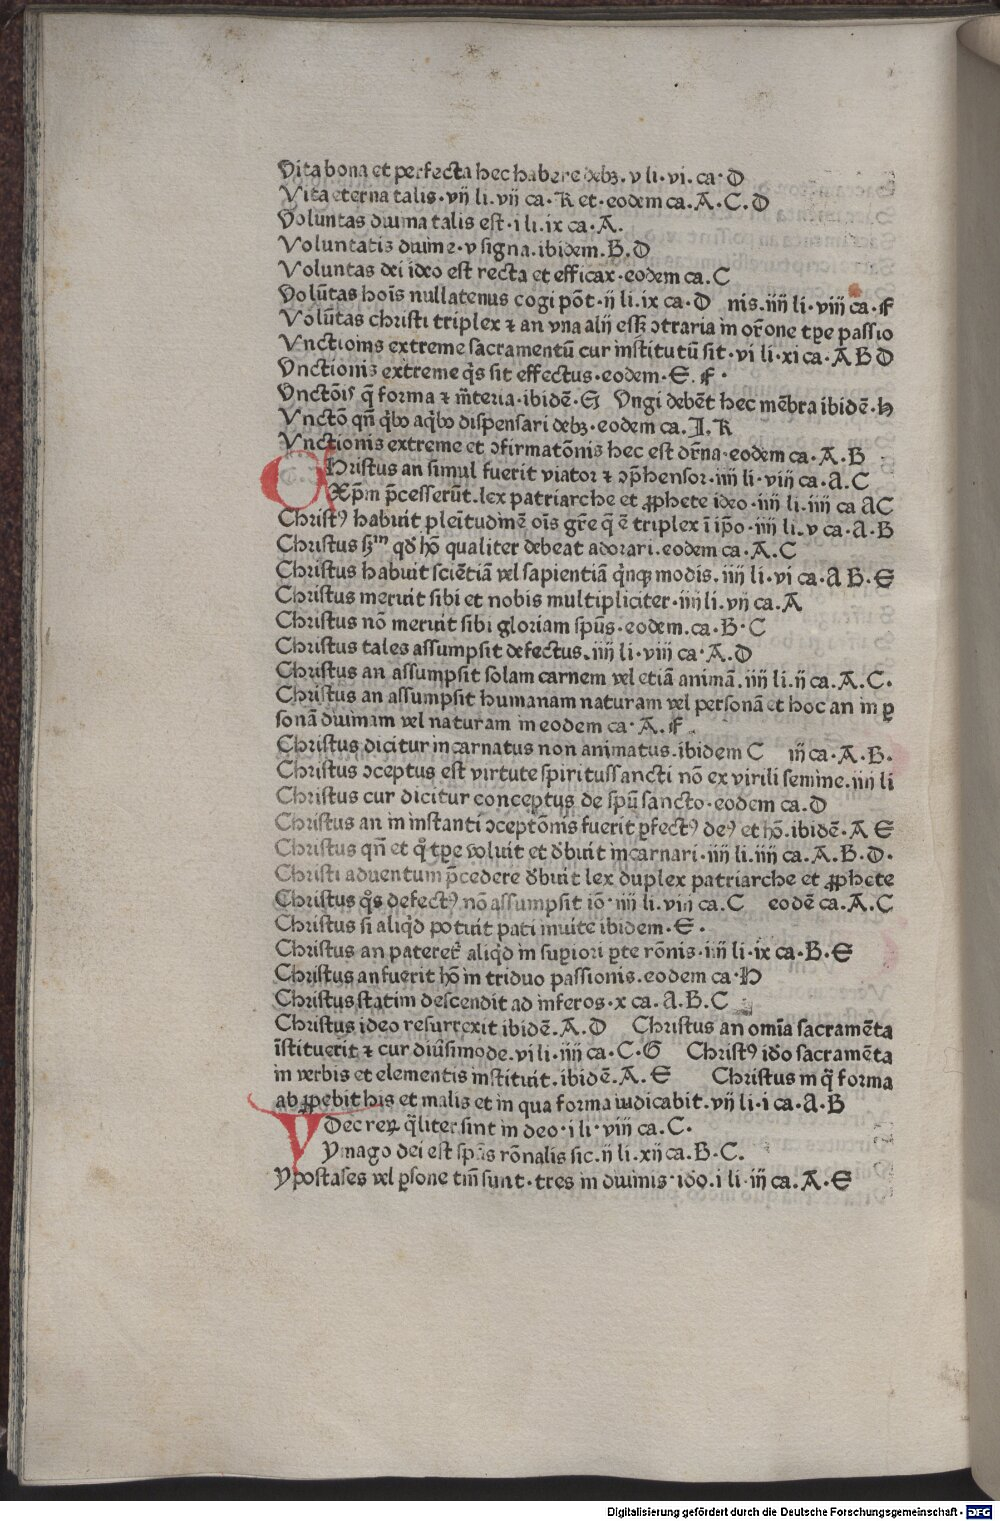 Vita bona et perfecta hec habere debꝫ. v li. vi. ca. D
Vita eterna talis. vij li. vij ca. K et. eodem ca. A. C. D
Voluntas diuina talis est. i li. ix ca. A.
Voluntatis diuine. v signa. ibidem. B. D
Voluntas dei ideo est recta et efficax. eodem ca. C
Volūtas hoīs nullatenus cogi pōt. ij li. ix ca. D nis. iiij li. viij ca. F
Volūtas christi triplex ⁊ an vna alij esst ↄtraria in or̄one tp̄e passio
Vnctionis extreme sacramentū cur institutū sit. vi li. xi ca. A B D
Vnctionis extreme q̄s sit effectus. eodem. E. F.
Vnctōis q̄ forma ⁊ m̄teria. ibidē. G Vngi debēt hec mēbra ibidē. H
Vnctō qn̄ qͥbꝰ aqͥbꝰ dispensari debꝫ. eodem ca. I. K
Vnctionis extreme et ↄfirmatōnis hec est dr̄na. eodem ca. A. B
CHristus an simul fuerit viator ⁊ ↄp̄hensor. iiij li. viij ca. A. C
Xp̄m p̄cesserūt. lex patriarche et ꝓphete ideo. iiij li. iiij ca A C
Christꝰ habuit plēitudinē oīs gr̄e q̄ ē triplex ī ip̄o. iiij li. v ca. A. B
Christus ẜm qd̄ hō qualiter debeat adorari. eodem ca. A. C
Christus habuit sciētiā vel sapientiā qͥnqꝫ modis. iiij li. vi ca. A B. E
Christus meruit sibi et nobis multipliciter. iiij li. vij ca. A
Christus nō meruit sibi gloriam sp̄us. eodem. ca. B. C
Christus tales assumpsit defectus. iiij li. viij ca. A. D
Christus an assumpsit solam carnem vel etiā animā. iiij li. ij ca. A. C.
Christus an assumpsit humanam naturam vel personā et hoc an in ꝑ
sonā diuinam vel naturam in eodem ca. A. F.
Christus dicitur incarnatus non animatus. ibidem C iij ca. A. B.
Christus ↄceptus est virtute spiritussancti nō ex virili semine. iiij li
Christus cur dicitur conceptus de sp̄u sancto. eodem ca. D
Christus an in instanti ↄceptōnis fuerit ꝑfectꝰ deꝰ et hō. ibidē. A E
Christus qn̄ et qͦ tp̄e voluit et dͤbuit incarnari. iiij li. iiij ca. A. B. D.
Christi aduentum p̄cedere dͤbuit lex duplex patriarche et ꝓphete
Christus qͦs defectꝰ nō assumpsit iō. iiij li. viij ca. C eodē ca. A. C
Christus si aliqͥd potuit pati inuite ibidem. E.
Christus an pateret͛ aliqͥd in supiori ꝑte rōnis. iiij li. ix ca. B. E
Christus an fuerit hō in triduo passionis. eodem ca. H
Christus statim descendit ad inferos. x ca. A. B. C
Christus ideo resurrexit ibidē. A. D Christus an omīa sacramēta
īstituerit ⁊ cur diuīsimode. vi li. iiij ca. C. G Christꝰ idō sacramēta
in verbis et elementis instituit. ibidē. A. E Christus in q̄ forma
apꝑebit bōis et malis et in qua forma iudicabit. vij li. i ca. A. B
YDee reꝝ qͣliter sint in deo. i li. viij ca. C.
Ymago dei est sp̄us rōnalis sic. ij li. xij ca. B. C.
Ypostases vel ꝑsone tm̄ sunt. tres in diuinis. idō. i li. iij ca. A. E
Digitalisierung gefördert durch die Deutsche Forschungsgemeinschaft - DFG